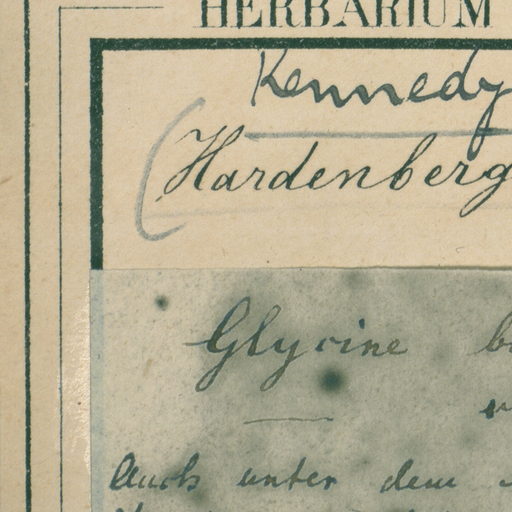 HERBARIUM
Kennedy
(Hardenberg
Glycine
Auch unter dem